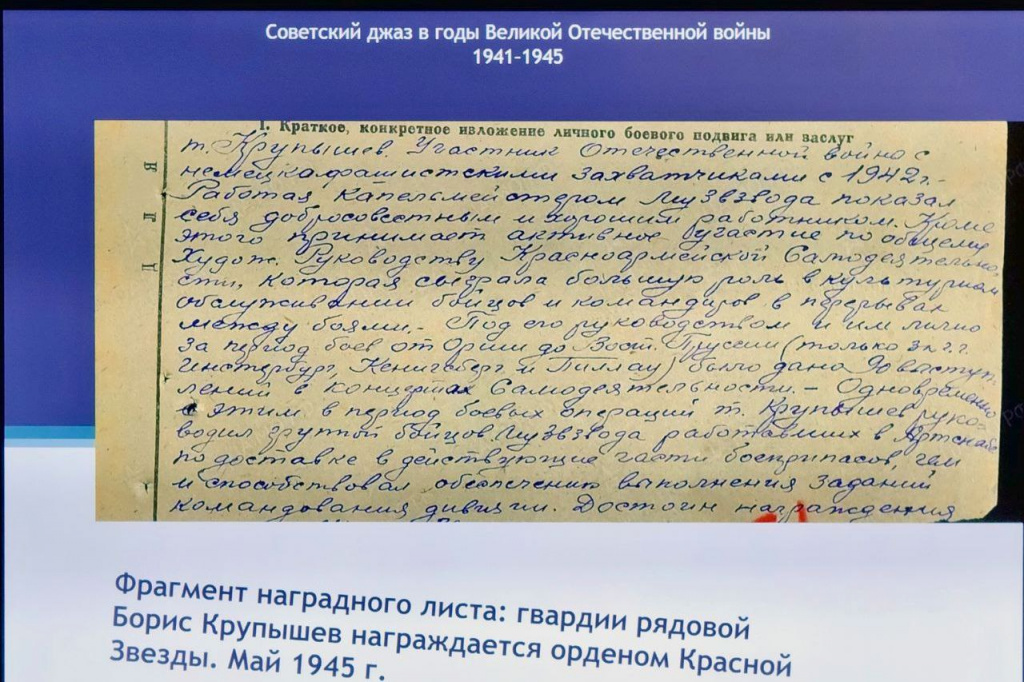 Советский джаз в годы Великой Отечественной войны
1941-1945
I. Краткое, конкретное изложение личного боевого подвига или заслуг
Д Л Я
т. Крупышев. Участник Отечественной война с
немецкафашистскими захватчиками с 1942 г.-
Работая капельмейстером Музвзвода показал
себя добросовестным и хорошим работником. Кроме
этого принимает активное участие по общему
Худож. Руководству Красноармейской Самодеятельно
сти, которая сыграла большую роль в культурном
обслуживании бойцов и командиров в перерывах
между боями.- Под его руководством и им лично
за период боев от Орши до Вост. Пруссии (только
Инстербург, Кенигсберг и Пиллау) было дано 90 выступ
лений в концертах Самодеятельности.- Одновременно
с этим в период боевых операций т. Крупышев руко
водил группой бойцов Музвзвода работавших в Артснабе
по доставке в действующие части боеприпасов, чем
и способствовал обеспечению выполнения заданий
командования дивизии. Достоин награждения
Фрагмент наградного листа: гвардии рядовой
Борис Крупышев награждается орденом Красной
Звезды. Май 1945 г.